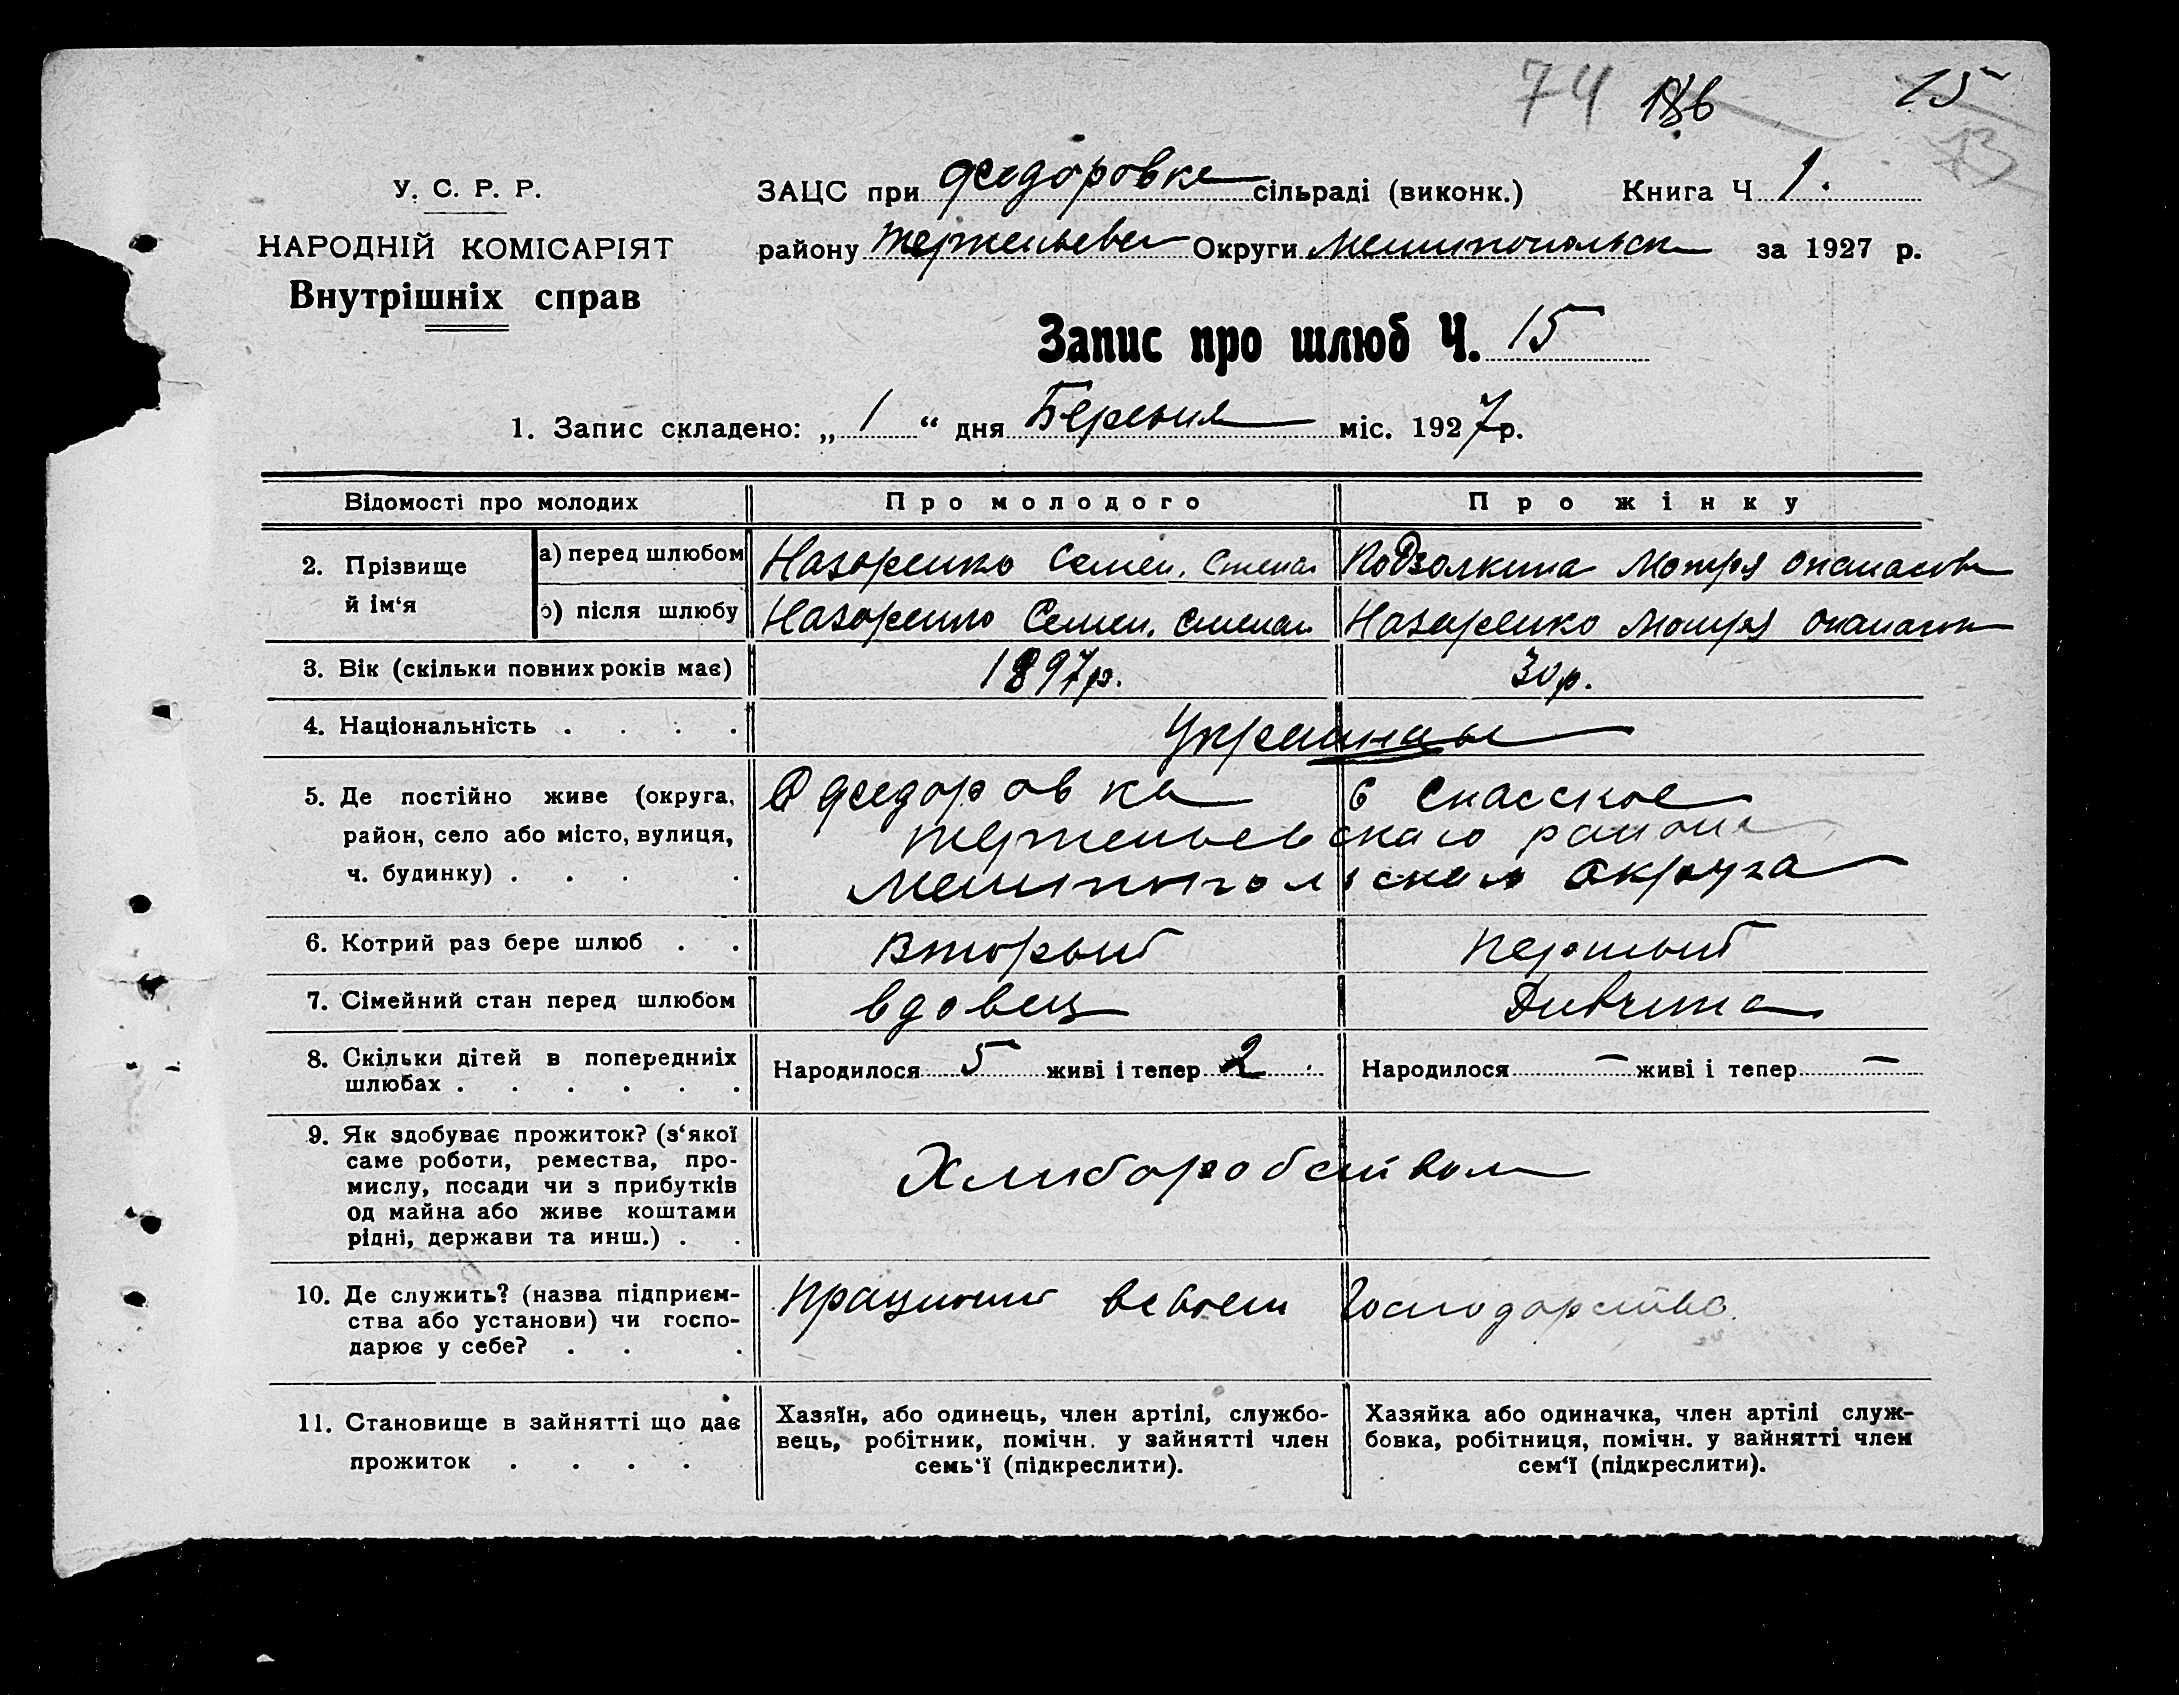 74 186 15
13
У. С. Р. Р.
НАРОДНІЙ КОМІСАРІЯТ
Внутрішніх справ
ЗАЦС при Федоровке сільраді (виконк.) Книга Ч 1.
району Терпеньевс Округи Мелитопольск за 1927 р.
Запис про шлюб Ч. 15
1. Запис складено: „ 1 “ дня Березня міс. 1927 р.
Відомості про молодих Про молодого Про жінку
2. Прізвище й ім‘я
а) перед шлюбом Назаренко Семен. Степан Подзолкина Мотря Опанасовн
б) після шлюбу Назаренко Семен. Степан Назаренко Мотря Опанасов
3. Вік (скільки повних років має) 1897р. 30р.
4. Національність . . . . Украинцы
5. Де постійно живе (округа, район, село або місто, вулиця, ч. будинку) . . . .
с Федоровка с Спасское
Терпеньевского района
Мелитопольского округа
6. Котрий раз бере шлюб . . Вторый Первый
7. Сімейний стан перед шлюбом вдовец Дивчина
8. Скільки дітей в попередниіх шлюбах . . . . . .
Народилося 5 живі і тепер 2 . Народилося – живі і тепер –
9. Як здобуває прожиток? (з‘якої
саме роботи, ремества, про-
мислу, посади чи з прибутків
од майна або живе коштами
рідні, держави та инш.) . .
Хлиборобством
10. Де служить? (назва підприєм-
ства або установи) чи госпо-
дарює у себе? . . .
своем Господарстве.
11. Становище в зайнятті що дає
прожиток . . . .
Хазяїн, або одинець, член артілі, службо-
вець, робітник, помічн. у зайнятті член
семь‘ї (підкреслити).
Хазяйка або одиначка, член артілі служ-
бовка, робітниця, помічн. у зайнятті член
сем‘ї (підкреслити).